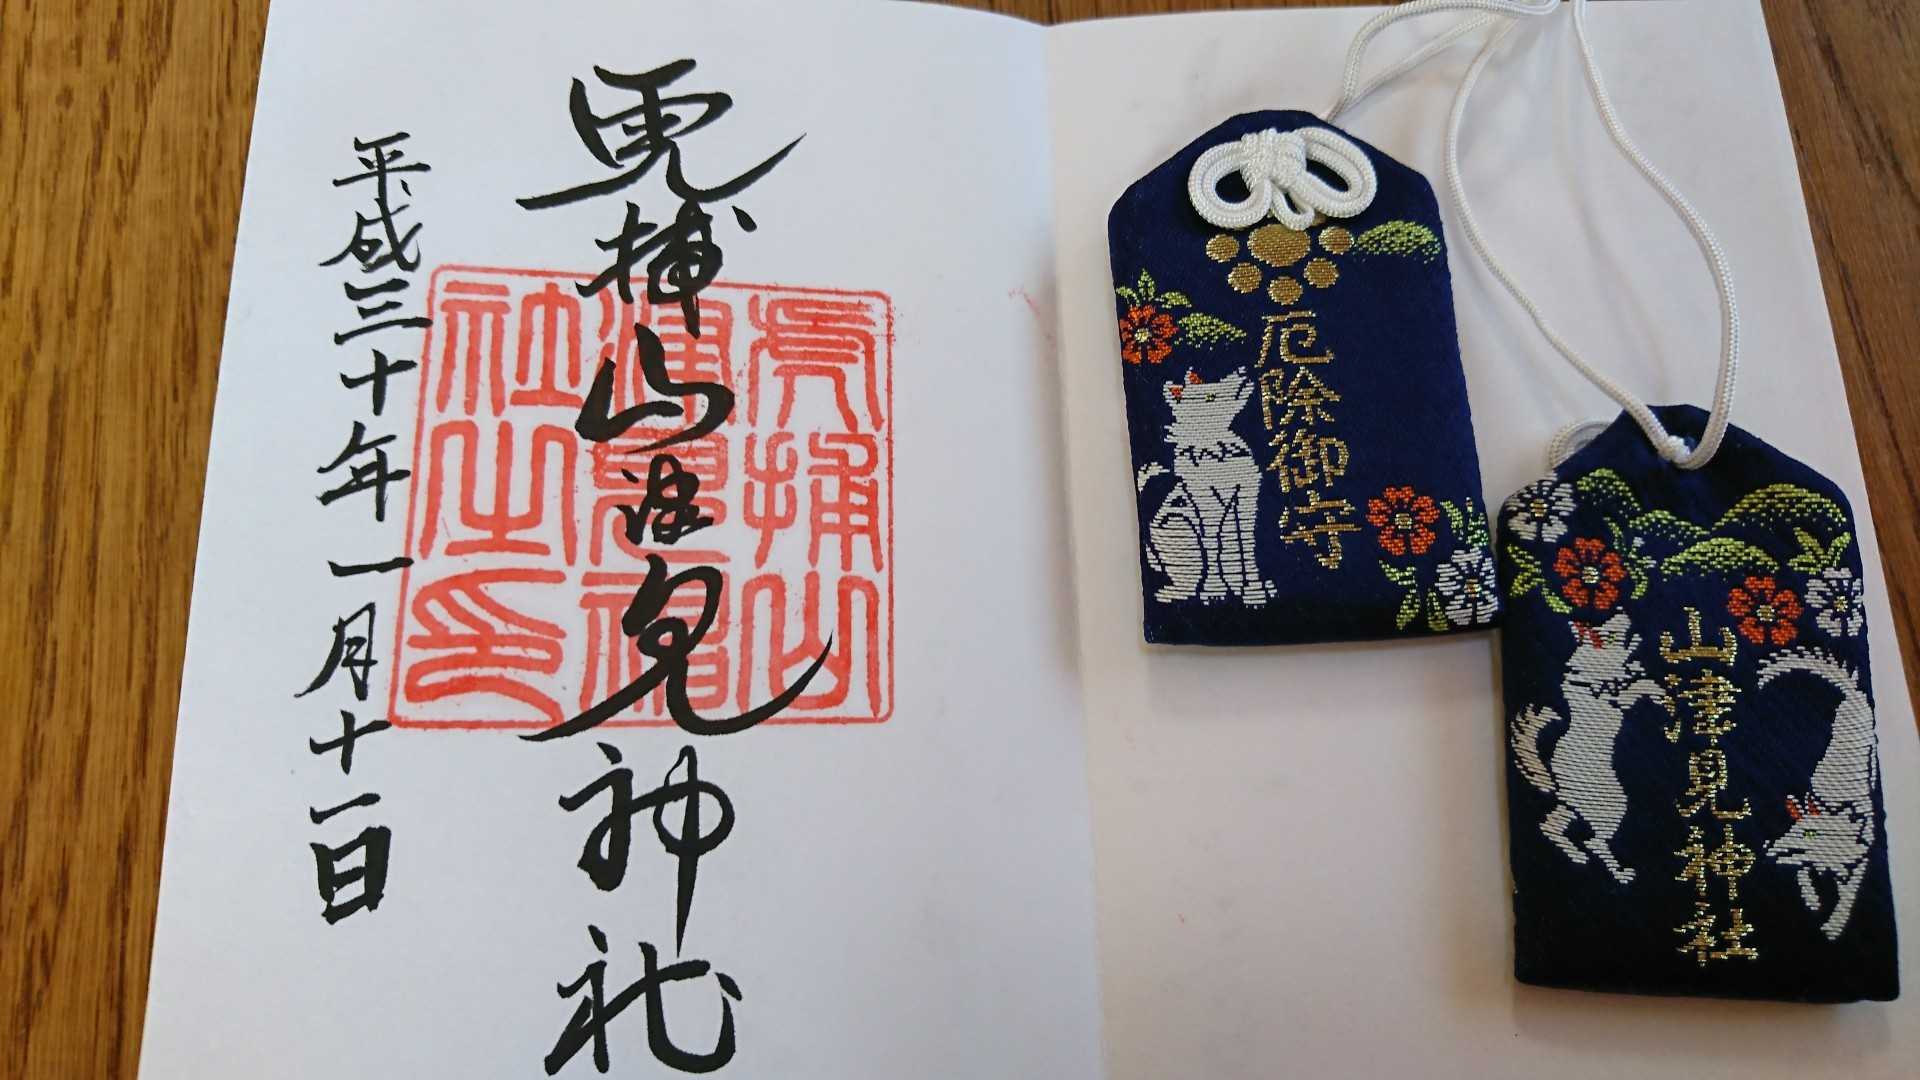 虎捕山津見神社
平成三十年一月十一日
虎捕山
津見神
社之印
厄除御守
山津見神社